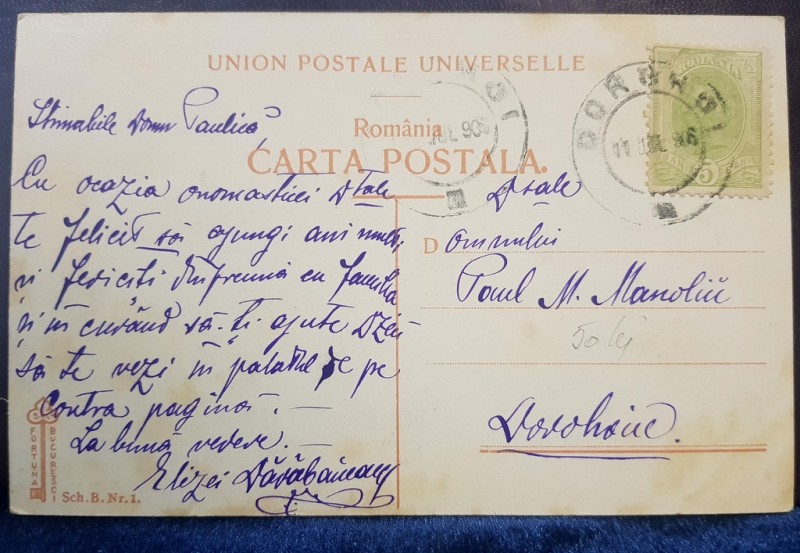 UNION POSTALE UNIVERSELLE
România
CARTA POSTALA.
DOROHOI
11 IUL 906
5
Stimabile Domn Paulică,
Cu ocazia onomasticei Dtale
te felicit să ajungi ani mulți
și fericiți împreună cu familia
și în curând să-ți ajute Dzeu
să te vezi în palatul de pe
contra pagină. —
La bună vedere. —
Elizei
Dtale
Domnului
Paul M. Manoliu
50 lei
Dorohoiu.
FORTUNA
BUCUREȘCI
Sch. B. Nr. 1.